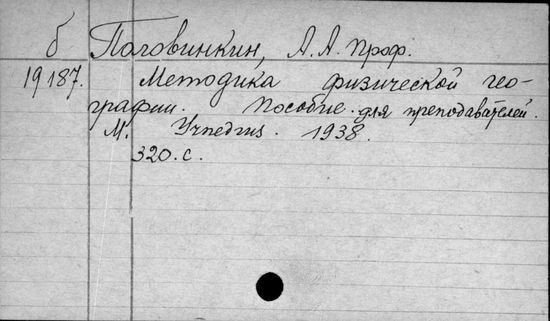 б Половинкин, А. А. Проф.
19187. Методика физической гео-
графии. Пособие для преподавателей.
М. Учпедгиз. 1938.
320. с.